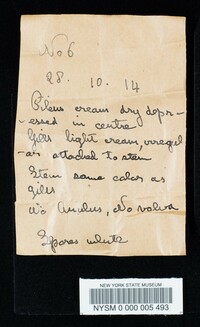 No 6
28. 10. 14
Pileus cream dry depr-
essed in centre
Gills light cream, irregul
-ar attached to stem
Stem same color as
gills
No Anulus, No volva
Spores white
NEW YORK STATE MUSEUM
NYSM 0 000 005 493